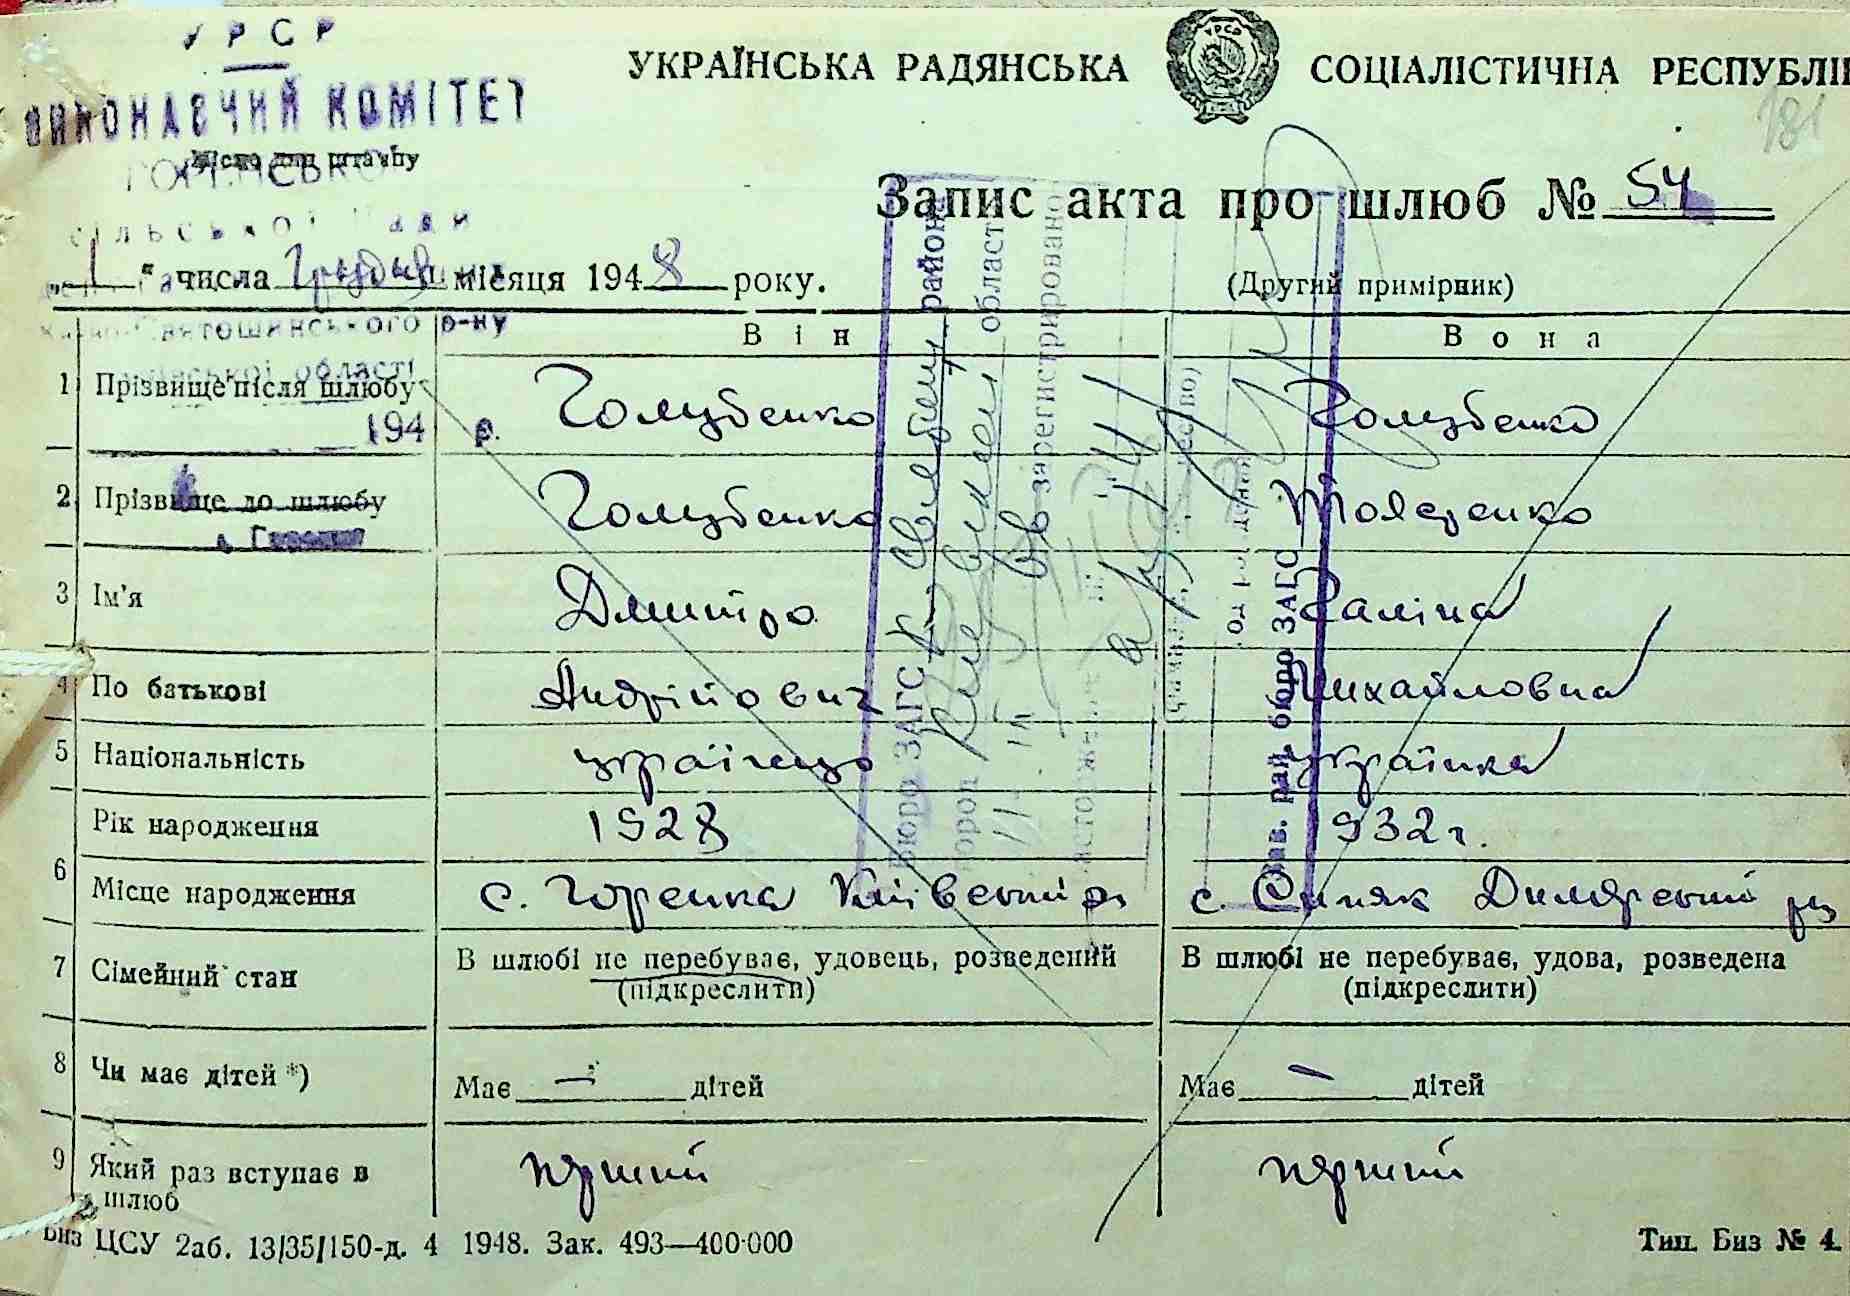 УРСР
ВИКОНАВЧИЙ КОМІТЕТ
УКРАЇНСЬКА РАДЯНСЬКА СОЦІАЛІСТИЧНА РЕСПУБЛІ
УРСР
181
Місце для штампу
Запис акта про шлюб № 54
сільської Ради
„1“ числа Грудня місяця 1948 року.
(Другий примірник)
Святошинського р-ну
області
194 р.
Він Вона
1 Прізвище після шлюбу Голубенко Голубенко
2 Прізвище до шлюбу Голубенко
3 Ім’я Дмитро Галіна
4 По батькові Андрійович Михайловна
5 Національність українець українка
Рік народження 1928 932 г.
6 Місце народження с. Горенка Київський р. с. Синяк Димерський р.
7 Сімейний стан В шлюбі не перебуває, удовець, розведений (підкреслити) В шлюбі не перебуває, удова, розведена (підкреслити)
8 Чи має дітей *) Має — дітей Має — дітей
9 Який раз вступає в шлюб перший перший
Бюро ЗАГС района
области
зарегистрировано
Зав. рай. бюро ЗАГС
Биз ЦСУ 2аб. 13/35/150-д. 4 1948. Зак. 493—400·000
Тип. Биз № 4.